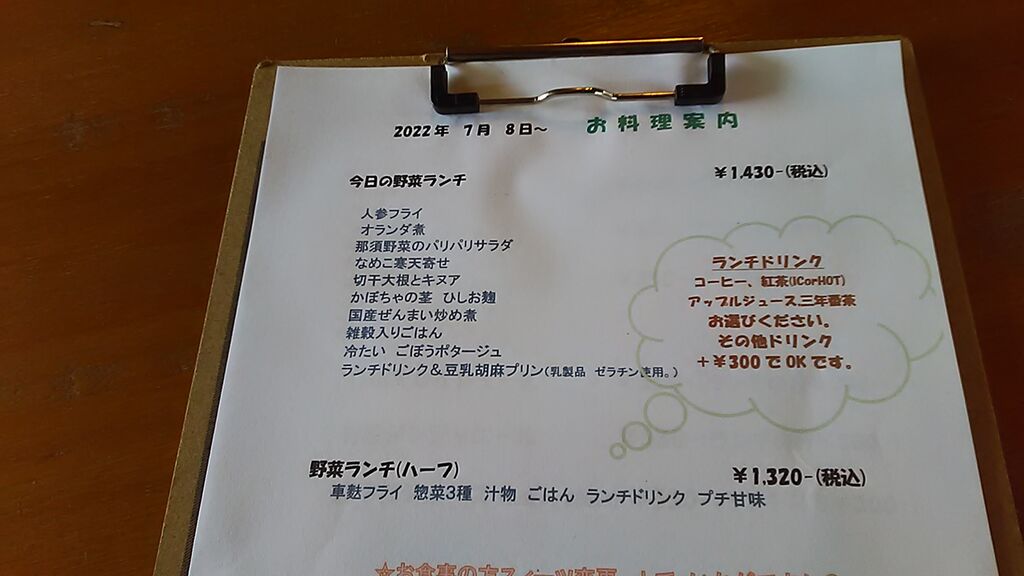 2022年 7月 8日～ お料理案内
今日の野菜ランチ ￥1,430-(税込)
人参フライ
オランダ煮
那須野菜のパリパリサラダ
なめこ寒天寄せ
切干大根とキヌア
かぼちゃの茎 ひしお麹
国産ぜんまい炒め煮
雑穀入りごはん
冷たい ごぼうポタージュ
ランチドリンク＆豆乳胡麻プリン(乳製品 ゼラチン使用。)
ランチドリンク
コーヒー、紅茶(ICorHOT)
アップルジュース,三年番茶
お選びください。
その他ドリンク
＋￥300でOKです。
野菜ランチ(ハーフ) ￥1,320-(税込)
車麩フライ 惣菜3種 汁物 ごはん ランチドリンク プチ甘味
☆お食事の方スイーツ変更